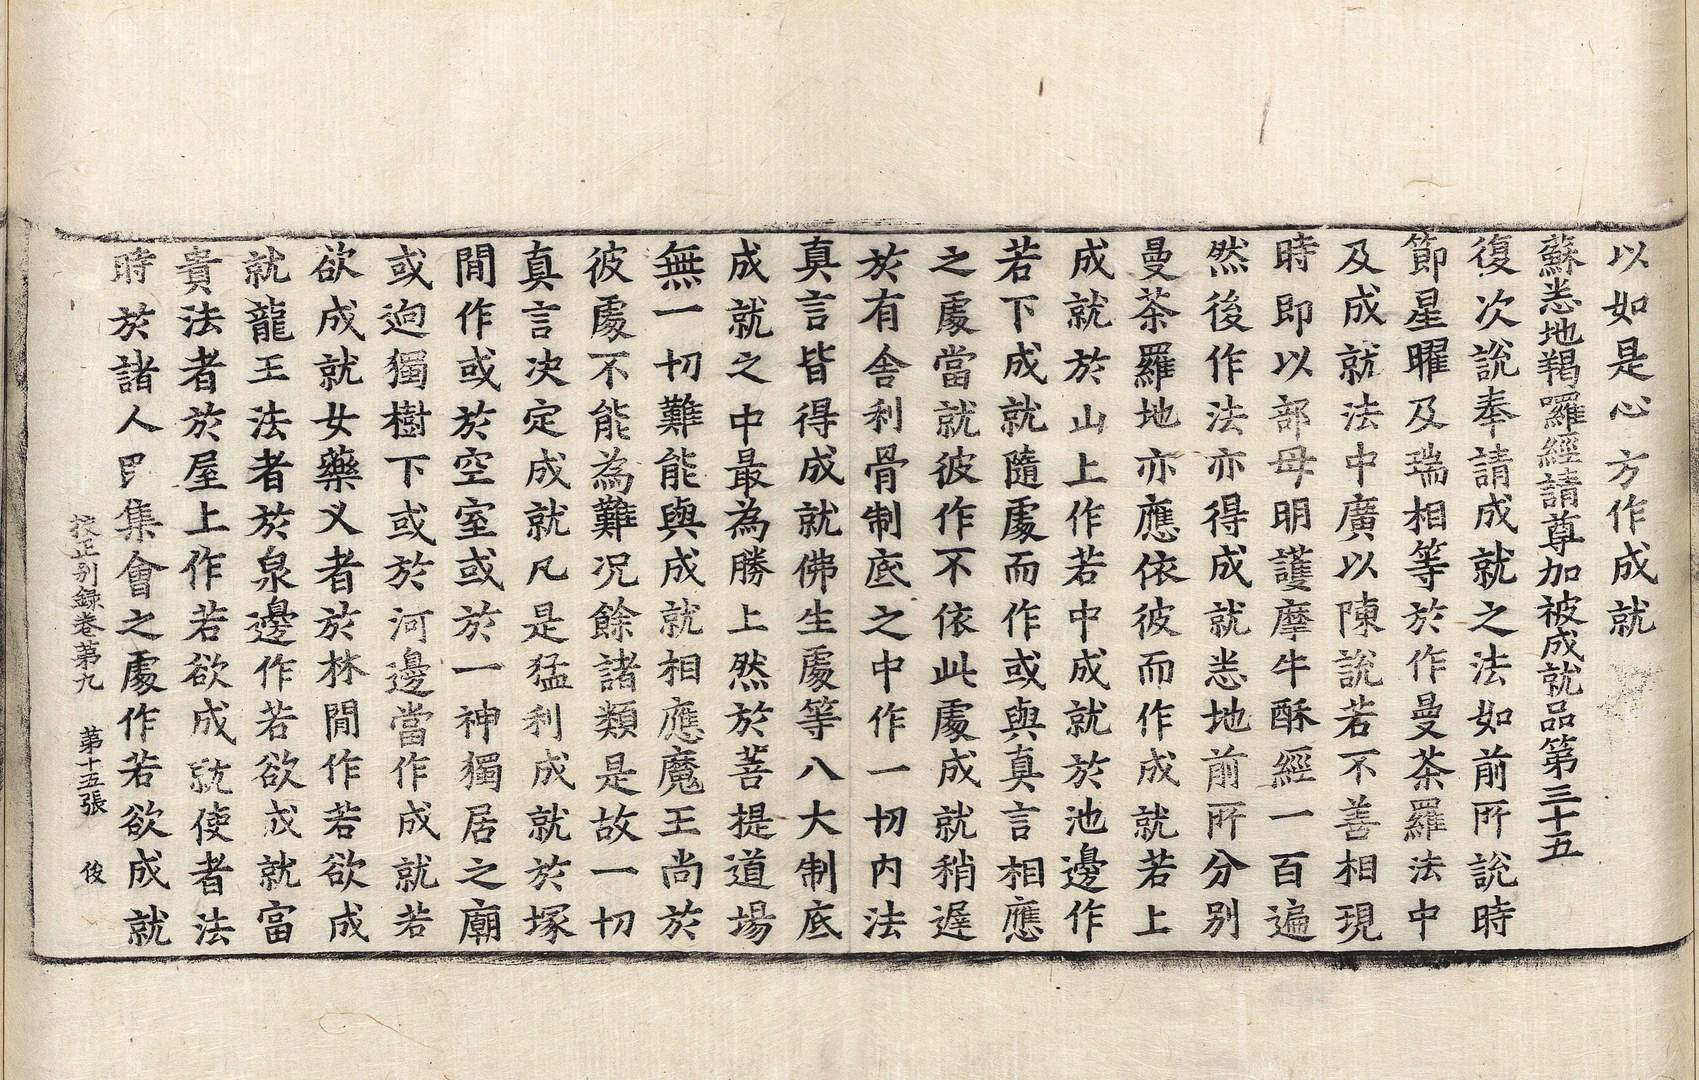 以如是心方作成就
蘇悉地羯囉經請尊加被成就品第三十五
復次說奉請成就之法如前所說時
節星曜及瑞相等於作曼荼羅法中
及成就法中廣以陳說若不善相現
時即以部母明護摩牛酥經一百遍
然後作法亦得成就悉地前所分別
曼荼羅地亦應依彼而作成就若上
成就於山上作若中成就於池邊作
若下成就隨處而作或與真言相應
之處當就彼作不依此處成就稍遲
於有舍利骨制底之中作一切內法
真言皆得成就佛生處等八大制底
成就之中最為勝上然於菩提道場
無一切難能與成就相應魔王尚於
彼處不能為難況餘諸類是故一切
真言決定成就凡是猛利成就於塚
間作或於空室或於一神獨居之廟
或逈獨樹下或於河邊當作成就若
欲成就女藥叉者於林間作若欲成
就龍王法者於泉邊作若欲成就富
貴法者於屋上作若欲成就使者法
時於諸人民集會之處作若欲成就
校正別錄卷第九 第十五張 俊